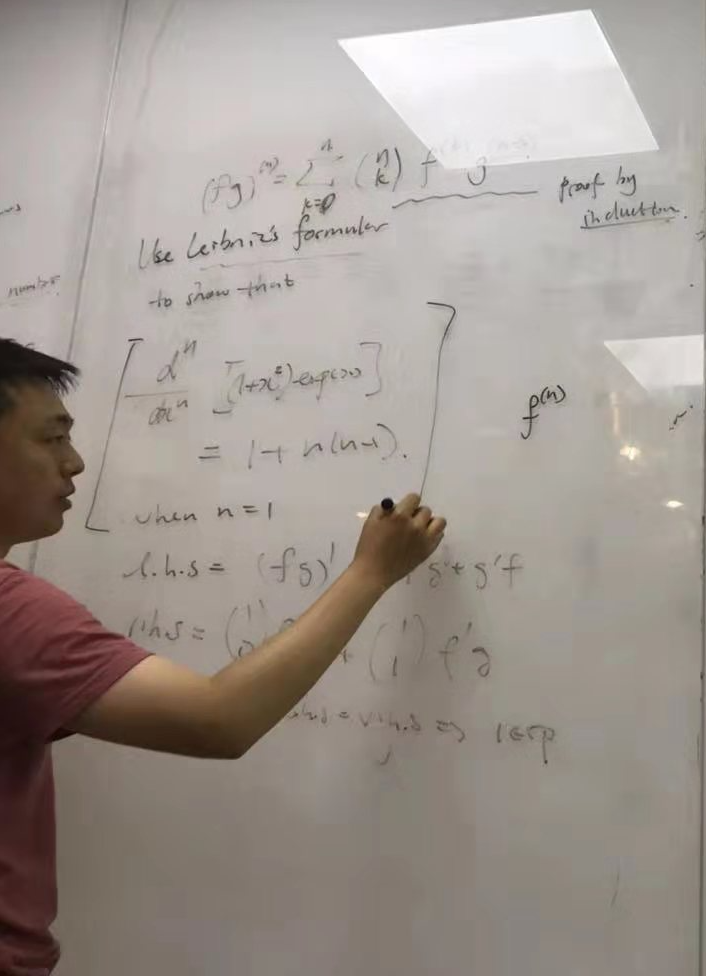 (fg)^(n) = Σ_{k=0}^{n} (n k) f^(k) g^(n-k)
proof by
induction.
Use Leibniz's formular
to show that
d^n/dx^n [(1+x²) exp(x)]
= 1 + n(n-1).
f^(n)
when n = 1
l.h.s = (fg)' g + g'f
r.h.s = (1 0) + (1 1) f'g
= r.h.s ⇒ 1∈P
number